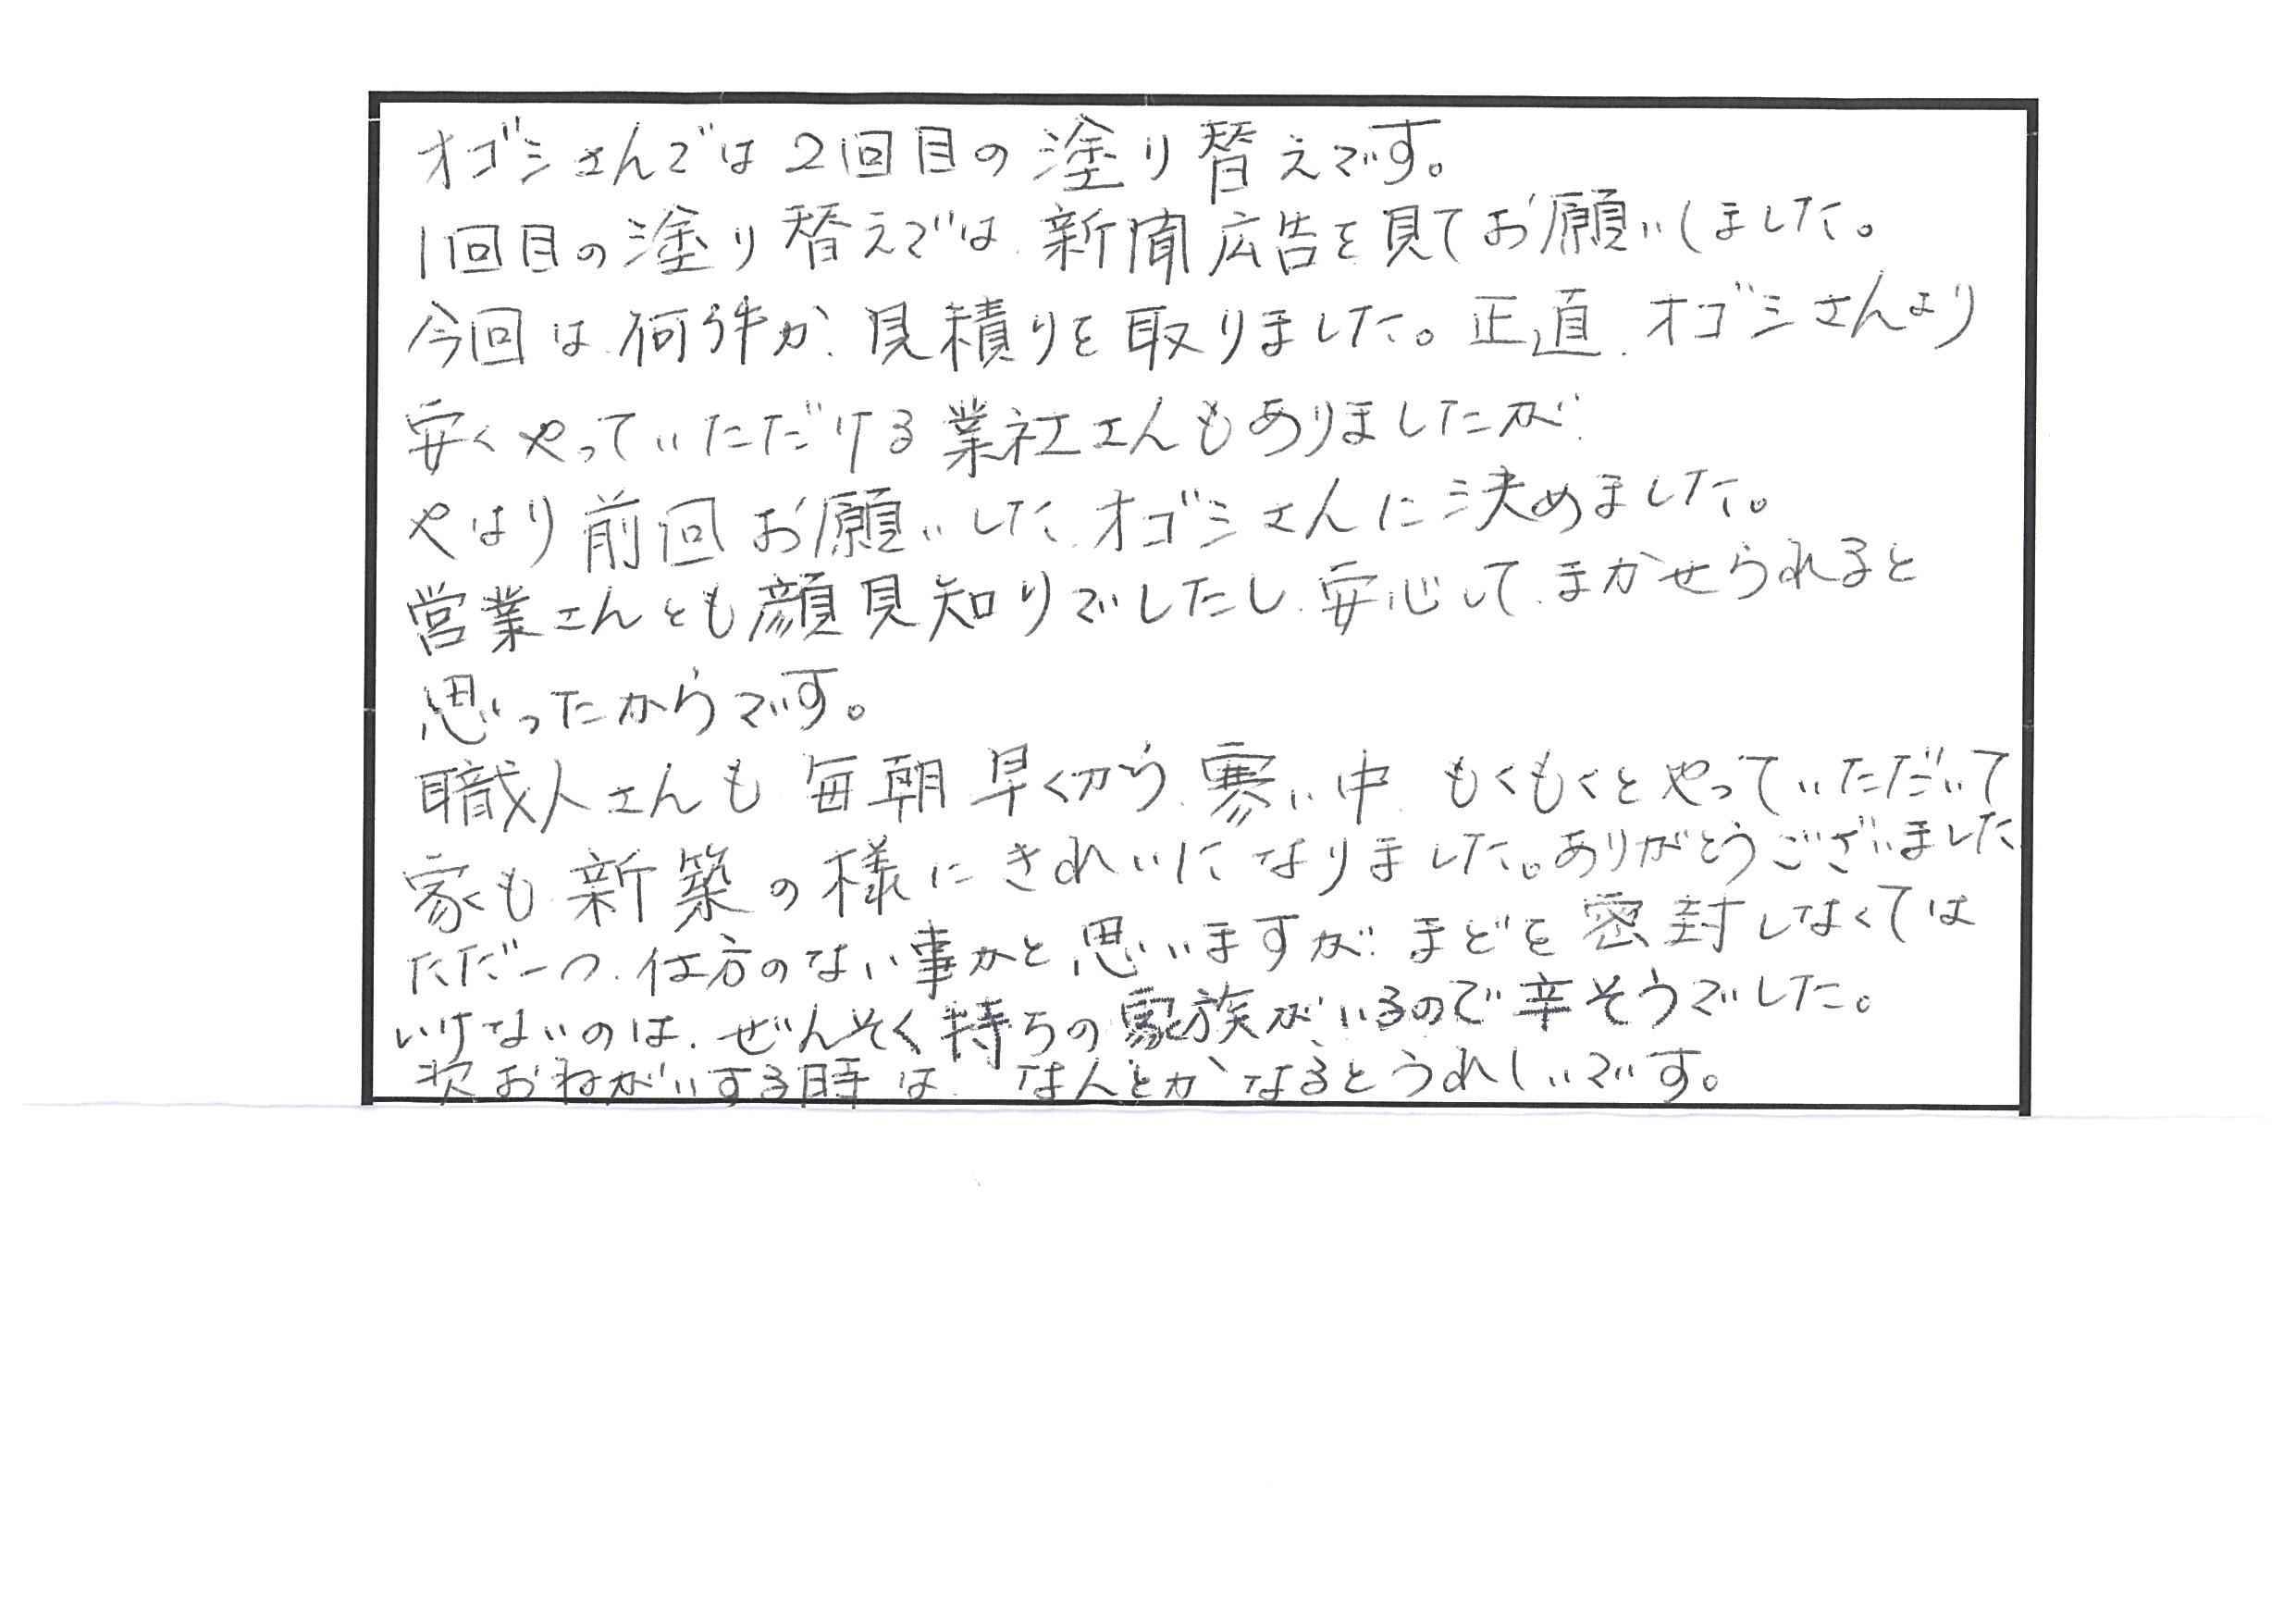 オゴシさんでは2回目の塗り替えです。
1回目の塗り替えでは、新聞広告を見てお願いしました。
今回は、何件か、見積りを取りました。正直、オゴシさんより
安くやっていただける業社さんもありましたが、
やはり前回お願いした、オゴシさんに決めました。
営業さんとも顔見知りでしたし、安心して、まかせられると
思ったからです。
職人さんも毎朝早くから、寒い中、もくもくとやっていただいて
家も新築の様にきれいになりました。ありがとうございました
ただ一つ、仕方のない事かと思いますが、まどを密封しなくては
いけないのは、ぜんそく持ちの家族がいるので辛そうでした。
次おねがいする時は、なんとかなるとうれしいです。